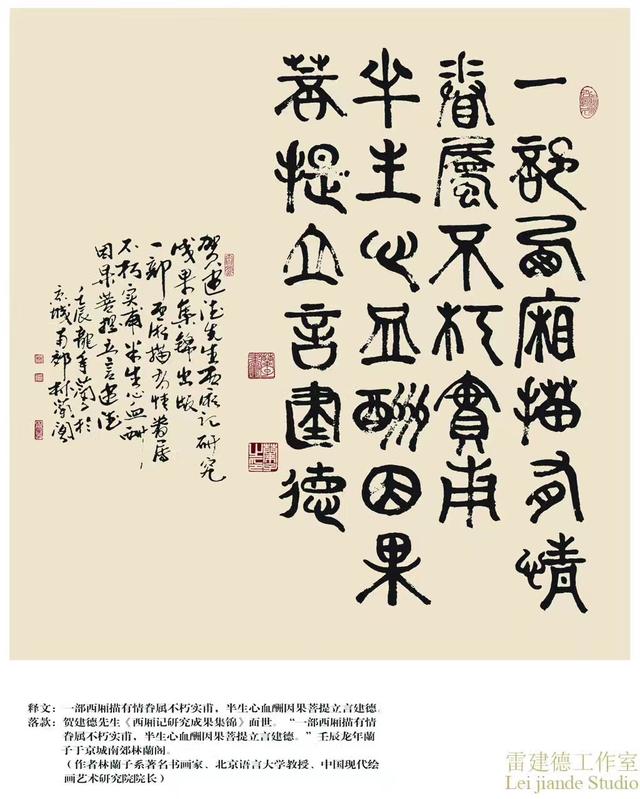 一部西廂描有情
眷屬不朽實甫
半生心血酬因果
菩提立言建德
贺建德先生西厢记研究
成果集錦出版
一部西厢描有情眷属
不朽实甫半生心血酬
因果菩提立言建德
壬辰龍年蘭子於
京城南郊林蘭阁
释文：一部西厢描有情眷属不朽实甫，半生心血酬因果菩提立言建德。
落款：贺建德先生《西厢记研究成果集锦》面世。“一部西厢描有情
眷属不朽实甫，半生心血酬因果菩提立言建德。”壬辰龙年蘭
子于京城南郊林蘭阁。
（作者林蘭子系著名书画家、北京语言大学教授、中国现代绘
画艺术研究院院长）
雷建德工作室
Lei jiande Studio